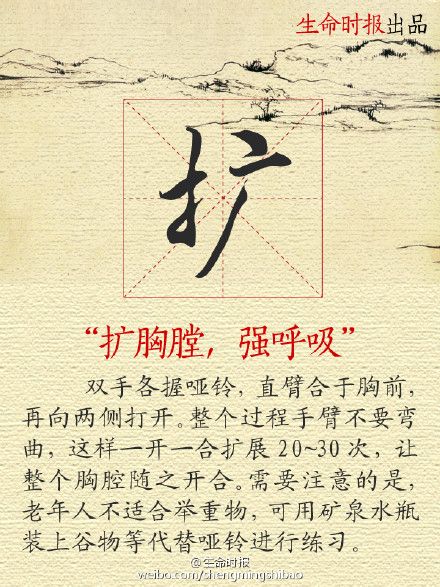 生命时报出品
扩
“扩胸膛，强呼吸”
双手各握哑铃，直臂合于胸前，
再向两侧打开。整个过程手臂不要弯
曲，这样一开一合扩展20~30次，让
整个胸腔随之开合。需要注意的是，
老年人不适合举重物，可用矿泉水瓶
装上谷物等代替哑铃进行练习。
@生命时报
weibo.com/shengmingshibao